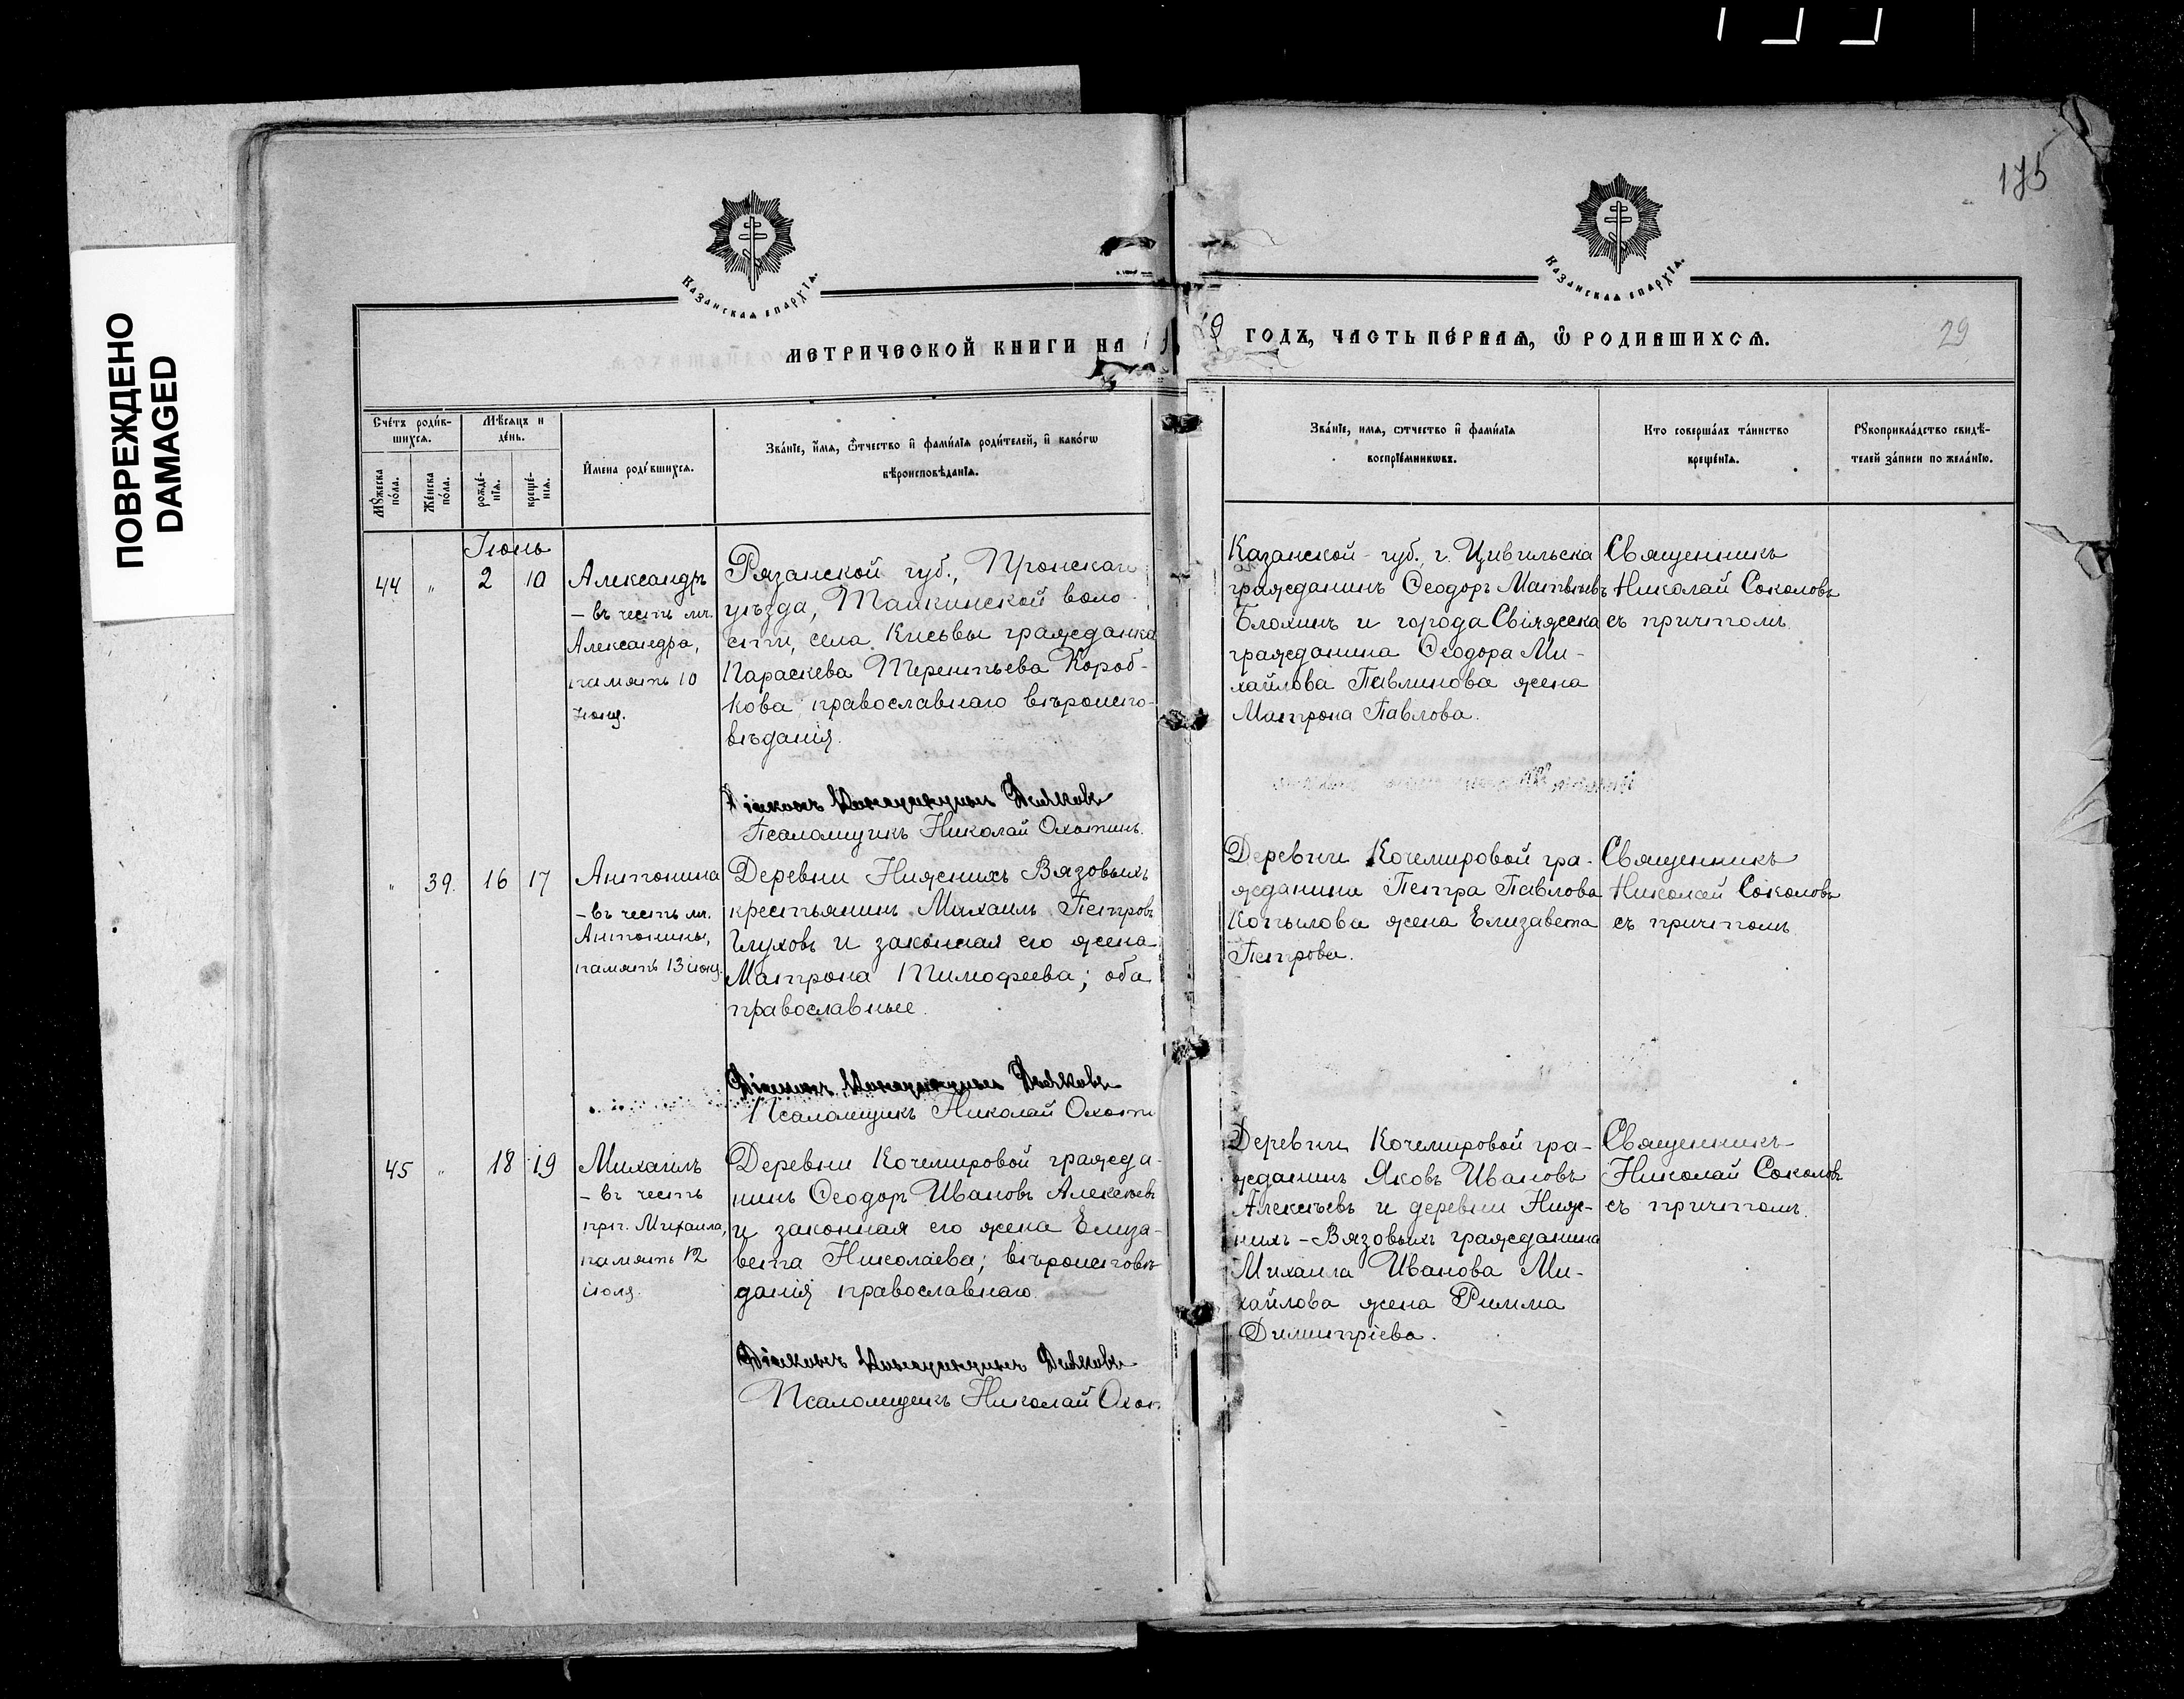 ПОВРЕЖДЕНО
DAMAGED
175
Казанская епархїа.
Казанская епархїа.
МЕТРИЧЕСКОЙ КНИГИ НА
ГОДЪ, ЧАСТЬ ПЕ́РВАѦ, Ѿ РОДИВШИХСѦ.
29
Сче́тъ роди́в-
шихсѧ.
Мѣ́сѧцъ и
де́нь.
Мꙋ́жеска
по́ла.
Же́нска
по́ла.
рожде́-
нїѧ.
креще́-
нїѧ.
Имена роди́вшихсѧ.
Зва́нїе, и́мѧ, ѻ҆́тчество и҆ фами́лїѧ роди́телей, и҆ како́гѡ
вѣроисповѣ́данїѧ.
Зва́нїе, имѧ, ѻтчество и҆ фами́лїѧ
воспрїе́мникѡвъ.
Кто соверша́лъ та́инство
креще́нїѧ.
Рꙋкоприкла́дство свидѣ́-
телей за́писи по жела́нїю.
Іюнь
44 " 2 10
Александръ
– въ честь мч.
Александра,
память 10
іюня.
Рязанской губ., Пронскаго
уѣзда, Маякинской воло-
сти, села Кисьвы гражданка
Параскева Терентьева Короб-
кова православнаго вѣроиспо-
вѣданія.
Псаломщикъ Николай Охотинъ.
Казанской губ., г. Цивильска
гражданинъ Ѳеодоръ Матвѣевъ
Блохинъ и города Свіяжска
гражданина Ѳеодора Ми-
хайлова Павлинова жена
Матрона Павлова.
Священникъ
Николай Соколовъ
съ причтомъ.
" 39. 16 17
Антонина
– въ честь мч.
Антонины,
память 13 іюня.
Деревни Нижнихъ Вязовыхъ
крестьянинъ Михаилъ Петровъ
Глуховъ и законная его жена
Матрона Тимофеева; оба
православные.
Псаломщикъ Николай Охоти
Деревни Кочемировой гра-
жданина Петра Павлова
Копылова жена Елизавета
Петрова.
Священникъ
Николай Соколовъ
съ причтомъ
45 " 18 19
Михаилъ
– въ честь
прп. Михаила,
память 12
іюля.
Деревни Кочемировой гражда-
нинъ Ѳеодоръ Ивановъ Алексѣевъ
и законная его жена Елиза-
вета Николаева; вѣроисповѣ-
данія православнаго.
Псаломщикъ Николай Охот
Деревни Кочемировой гра-
жданинъ Яковъ Ивановъ
Алексѣевъ и деревни Ниж-
нихъ-Вязовыхъ гражданина
Михаила Иванова Ми-
хайлова жена Римма
Димитріева.
Священникъ
Николай Соколовъ
съ причтомъ.